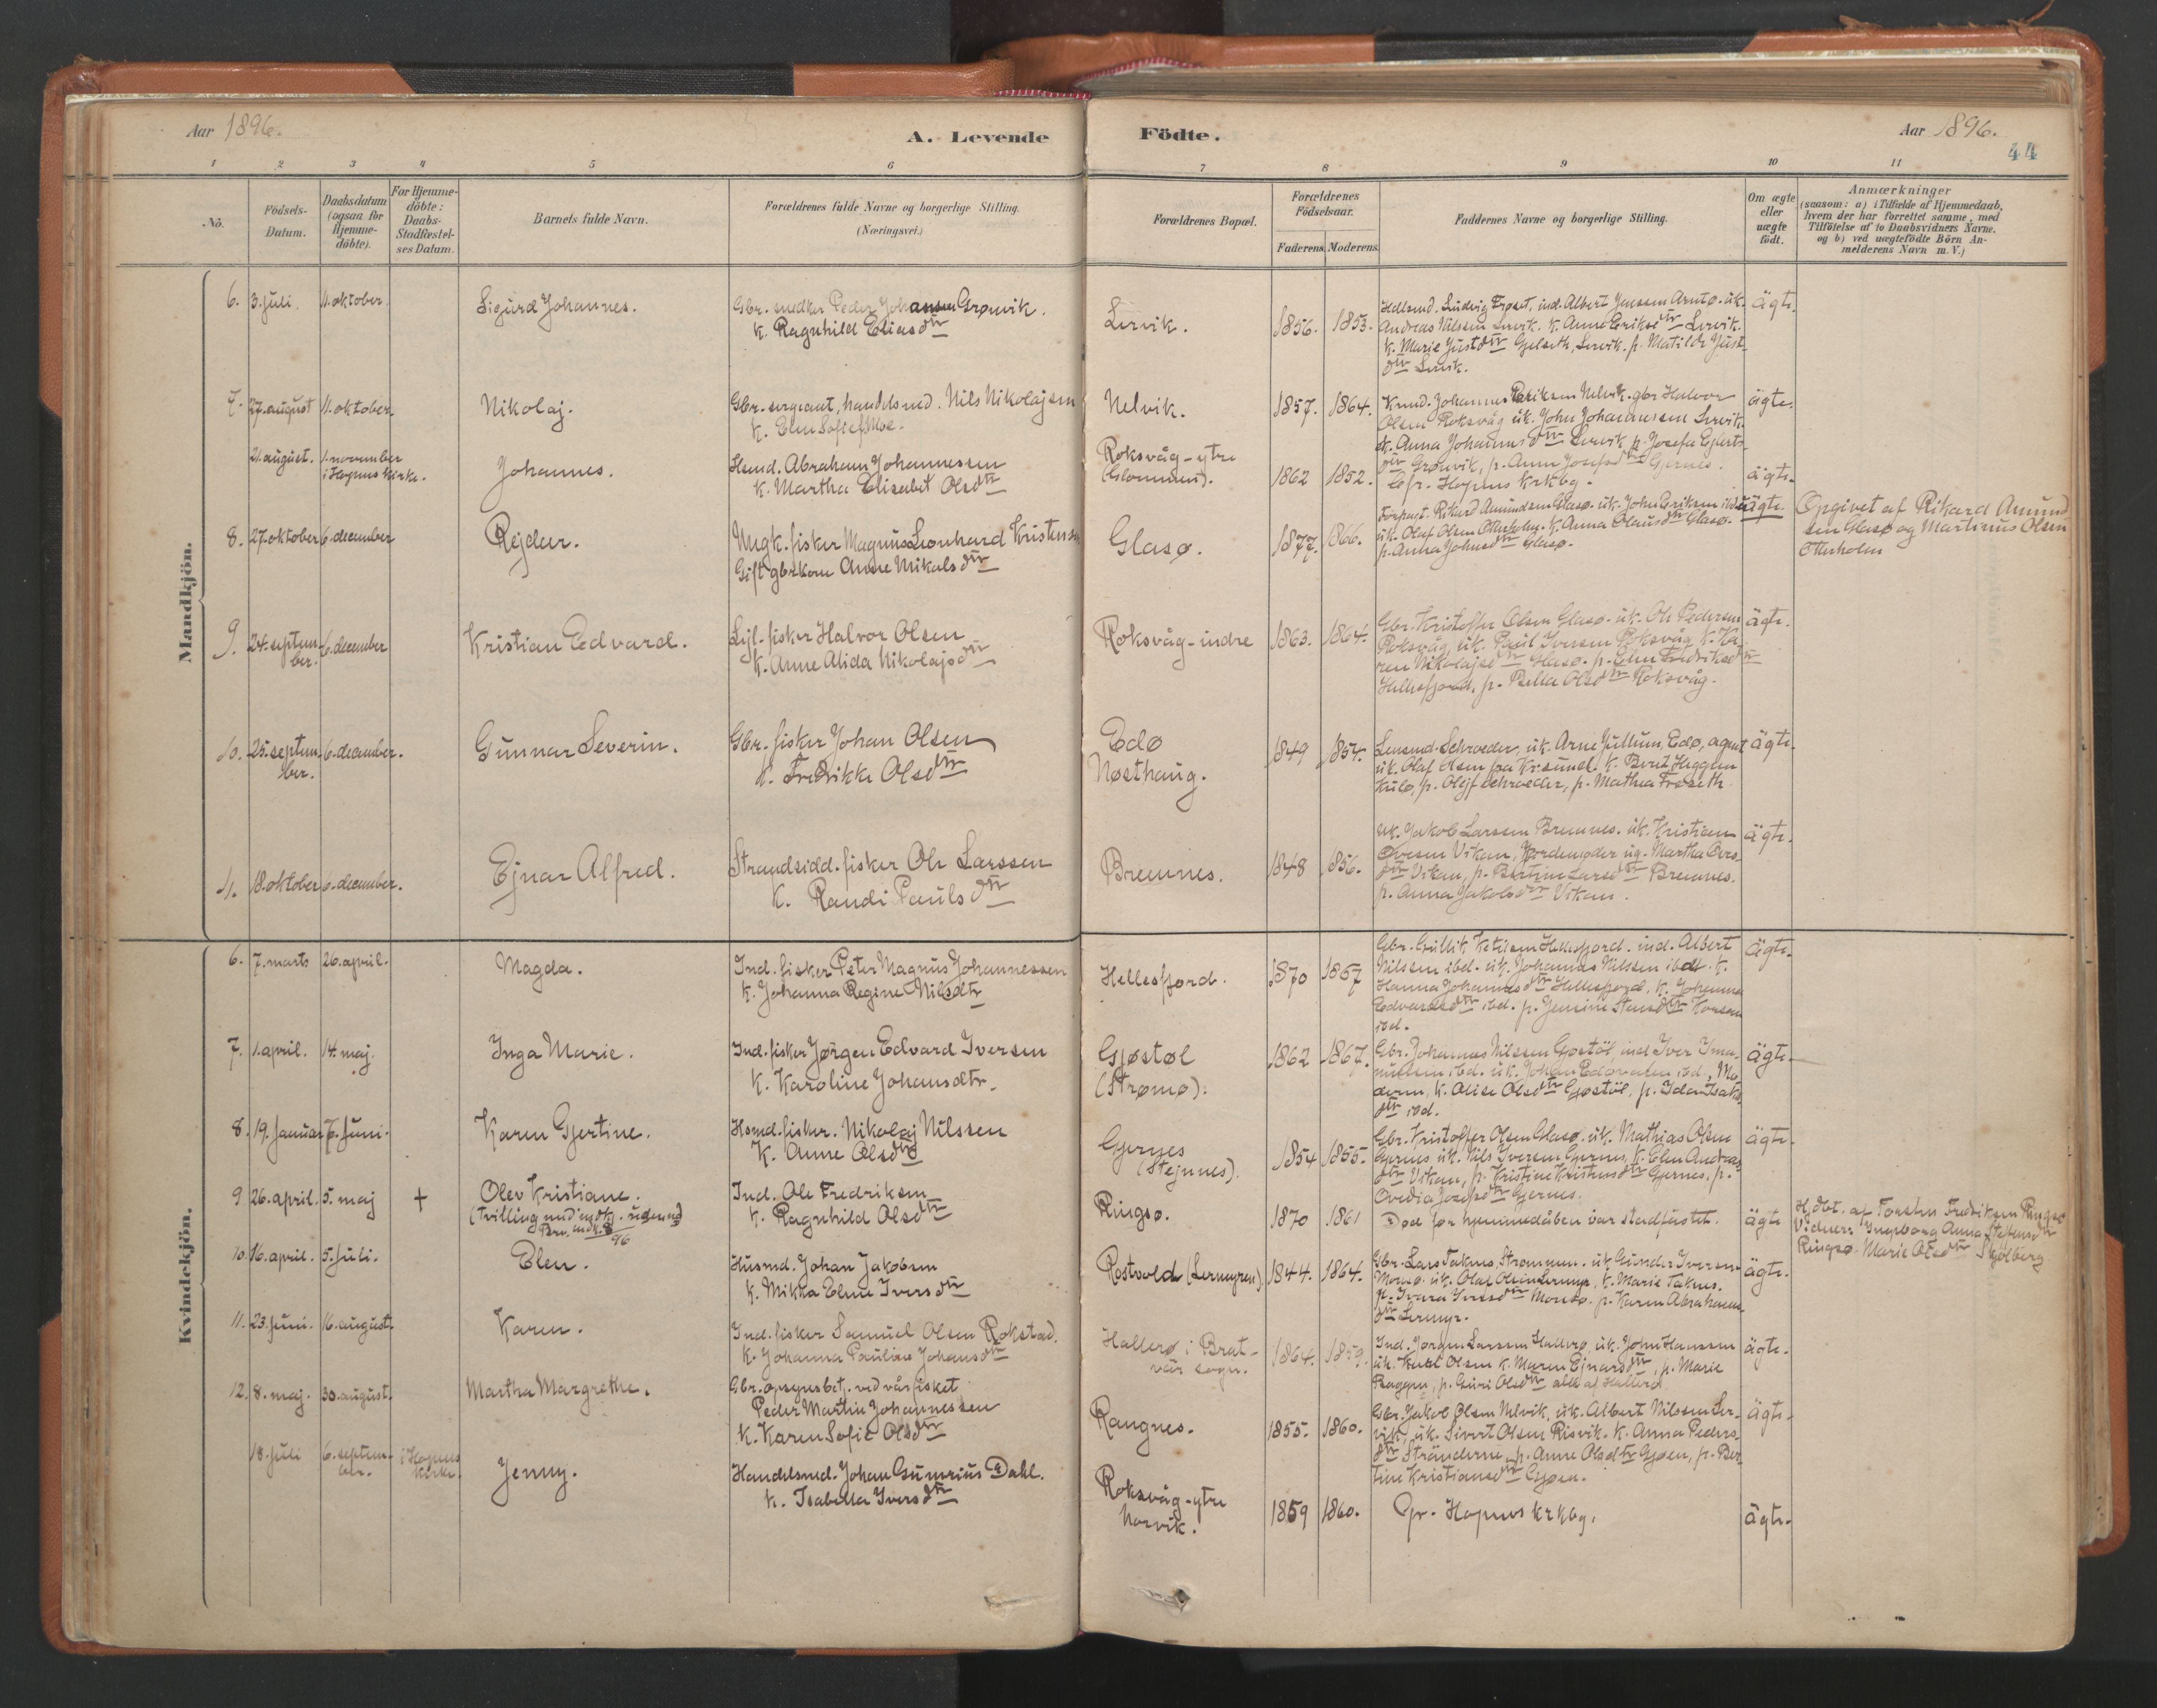 Aar 1896.
A. Levende
Födte.
Aar 1896.
44
1 2 3 4 5 6 7 8 9 10 11
No.
Födsels-Datum.
Daabsdatum (ogsaa for Hjemme-döbte).
For Hjemme-döbte: Daabs-Stadfæstel-ses Datum.
Barnets fulde Navn.
Forældrenes fulde Navne og borgerlige Stilling.
(Næringsvei.)
Forældrenes Bopæl.
Forældrenes Födselsaar.
Faderens. Moderens.
Faddernes Navne og borgerlige Stilling.
Om ægte eller uægte födt.
Anmærkninger
(saasom: a) i Tilfælde af Hjemmedaab,
hvem der har forrettet samme, med
Tilföielse af to Daabsvidners Navne.
og b) ved uægtefödte Börn An-
melderens Navn m. V.)
Mandkjön.
6. 3. juli. 11. oktober. Sigurd Johannes. Gbr. snedker Peder Johansen Grønvik.
k. Ragnhild Eliasdtr
Lervik. 1856. 1853.
Ludvig Frøset, ind. Albert Jenssen Arntø. uk.
Andreas Nilssen Lervik. k. Anne Eriksdtr Lervik.
k. Marie Justdtr Gjelseth, Lervik. p. Matilde Just-
dtr Lervik.
ägte.
7. 27. august 11. oktober. Nikolaj. Gbr. sergeant, handelsmd. Nils Nikolajsen
k. Elen Sofie Moe.
Nelvik. 1857. 1864.
Johannes Eriksen Nelvik. gbr Halvor
Olsen Roksvåg uk. John Johannessen Lervik.
k. Anna Johannesdtr Lervik p. Josefa Ejlerts-
dtr Grønvik, p. Anna Josefsdtr Gjernes.
ägte.
21. august. 1. november i Hopens kirke. Johannes. Husmd. Abraham Johannessen
k. Martha Elisabet Olsdtr
Roksvåg-ytre
1862 1852. Cfr. Hopens krkbg.
ägte.
8. 27. oktober 6. december Rejdar. Ungk. fisker Magnus Leonhard Kristensen
Gift gbrkone Anne Mikalsdtr
Glasø. 1877. 1866.
Forpagt. Rikard Amundsen Glasø. uk. John Eriksen
uk. Olaf Olsen Otterholm. k. Anna Olausdtr Glasø.
p. Anna Johnsdtr Glasø.
uägte.
Opgivet af Rikard Amund
sen Glasø og Martinus Olsen
Otterholm
9. 24. septem-
ber. 6. december Kristian Edvard. Lejl. fisker Halvor Olsen
k. Anne Alida Nikolajsdtr
Roksvåg-indre 1863. 1864.
Gbr. Kristoffer Olsen Glasø. uk. Ole Pedersen
Roksvåg, uk. Paul Iversen Roksvåg k. Ka-
ren Nikolajsdtr Glasø. p. Elen Fredriksdtr
Hellesfjord, p. Pella Olsdtr Roksvåg.
ägte.
10. 25. septem-
ber. 6. december. Gunnar Severin. Gbr. fisker Johan Olsen
k. Fredrikke Olsdtr
Edø
Nøsthaug.
1849 1854.
Lensmd. Schroeder, uk. Arne Jullum, Edø, agent
uk. Olaf Olsen fra Kr.sund. k. Berit Heggem
Kulø, p. Oleff Schroeder, p. Mathea Frøseth
ägte.
11. 18. oktober 6. december. Ejnar Alfred. Strandsidd. fisker Ole Larssen
k. Randi Paulsdtr
Bremnes. 1848 1856.
uk. Jakob Larssen Bremnes. uk. Kristian
Ovesen Vikan, Jordemoder ug. Martha Oves-
dtr Vikan, p. Bertine Larsdtr Bremnes.
p. Anna Jakobsdtr Vikan.
ägte.
Kvindekjön.
6. 7. marts 26. april. Magda. Ind. fisker Peter Magnus Johannessen
k. Johanna Regine Nilsdtr
Hellesfjord. 1870 1867
Gbr. Gullik Ketilsen Hellesfjord. ind. Albert
Nilssen ibd. uk. Johannes Nilssen ibd. k.
Hanna Johannesdtr Hellesfjord. k. Johanna
Edvardsdtr ibd. p. Jensine
ibd.
ägte.
7. 1. april. 14. maj. Inga Marie. Ind. fisker Jørgen Edvard Iversen
k. Karoline Johansdtr.
Gjøstøl
(Strømø). 1862 1867.
Gbr. Johannes Nilssen Gjøstøl, ind Iver Ima-
nuelsen ibd. uk. Johan Edvardsen ibd, Mo-
deren, k. Alise Olsdtr Gjøstöl, p. Ida Isaks-
dtr ibd.
ägte.
8. 19. januar 7. juni. Karen Gjertine. Hsmd. fisker. Nikolaj Nilssen
k. Anne Olsdtr
Gjernes
(Stejnnes). 1854 1855.
Gbr. Kristoffer Olsen Glasø. uk. Mathias Olsen
Gjernes uk. Nils Iversen Gjernes, k. Elen Andreas-
dtr Vikan, p. Kristine Kristensdtr Gjernes, p.
Ovedia Josefsdtr Gjernes.
ägte.
9 26. april. 5. maj † Olev Kristiane.
(Tvilling med
Ind. Ole Fredriksen
k. Ragnhild Olsdtr
Ringsø. 1870 1861
Død før hjemmedåben var stadfæstet.
ägte
Hj.dbt. af Torsten Fredriksen Ringsø
Vidner: Ingeborg Anna
Ringsø. Marie Olsdtr Skjølberg
10. 16. april. 5. juli. Elen. Husmd. Johan Jakobsen
k. Mikka Elene Iversdtr
Rostvold (Lermyren). 1844. 1864.
Gbr. Lars Taknes, Strømmen. uk Gunder Iversen
Monsø. uk. Olaf Olsen Lermyr, k. Marie Taknes.
p. Ivara Iversdtr Monsø. p. Karen Abrahams-
dtr Lermyr.
ägte.
11. 23. juni. 16. august. Karen. Ind. fisker Samuel Olsen Rokstad.
k. Johanna Pauline Johansdtr
Hallerø i Brat-
vær sogn. 1864. 1859.
Ind. Jørgen Larssen Hallerø, uk. John Hanssen
uk. Knut Olsen k. Maren Ejnarsdtr, p. Marie
p. Guri Olsdtr alle af Hallerø
ägte.
12. 8. maj. 30. august. Martha Margrethe. Gbr. opsynsbetj. ved vårfisket
Peder Martin Johannessen
k. Karen Sofie Olsdtr
Rangnes. 1855. 1860.
Gbr. Jakob Olsen Nelvik, uk. Albert Nilssen Ler-
vik, uk. Sivert Olsen Risvik. k. Anna Peders-
dtr Stränderne, p. Anne Olsdtr Gjøen, p. Ber-
tine Kristiansdtr Gjøen.
ägte.
18. juli 6. septem-
ber. i Hopens
kirke. Jenny. Handelsmd. Johan Gunerius Dahl.
k. Isabella Iversdtr
Roksvåg-ytre
Norvik. 1859 1860. Cfr. Hopens krkbg.
ägte.